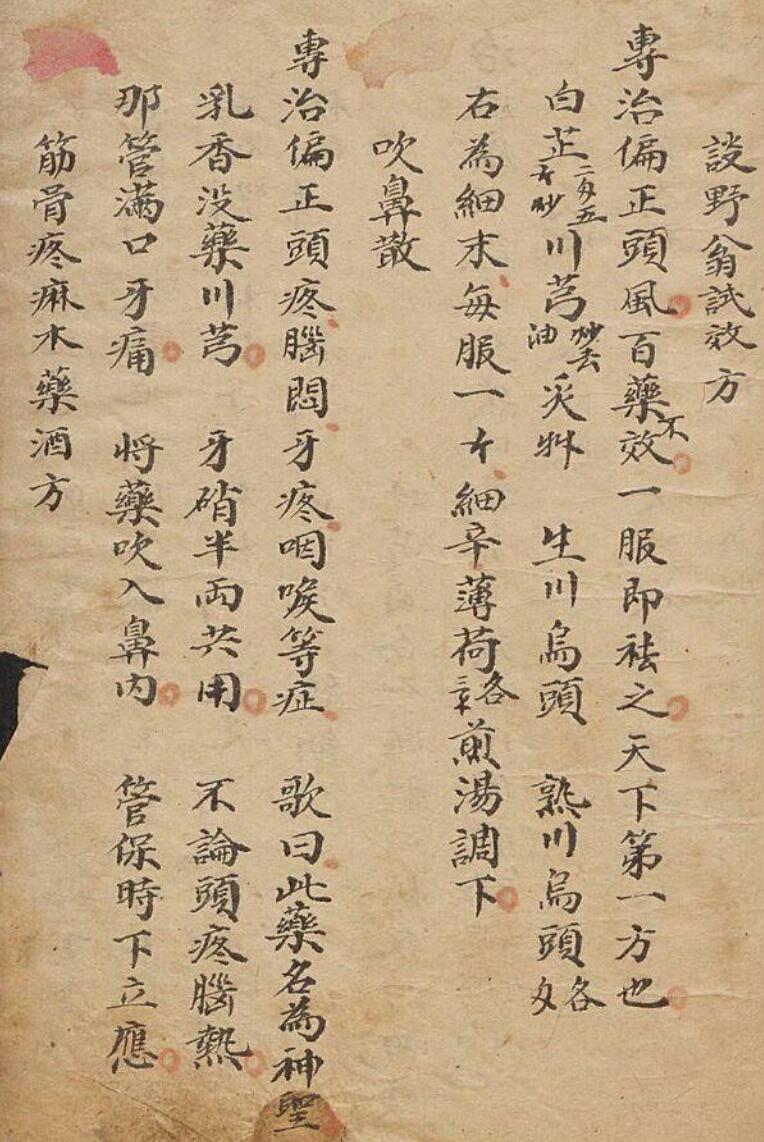 談野翁試效方
專治偏正頭風百藥不效一服即祛之天下第一方也
白芷二戔五 川芎炒去油 炙艸 生川烏頭 熟川烏頭各
右為細末每服一 細辛薄荷各 煎湯調下
吹鼻散
專治偏正頭疼腦悶牙疼咽喉等症 歌曰此藥名為神聖
乳香没藥川芎 牙硝半両共用 不論頭疼腦熱
那管滿口牙痛 将藥吹入鼻内 管保時下立應
筋骨疼麻木藥酒方